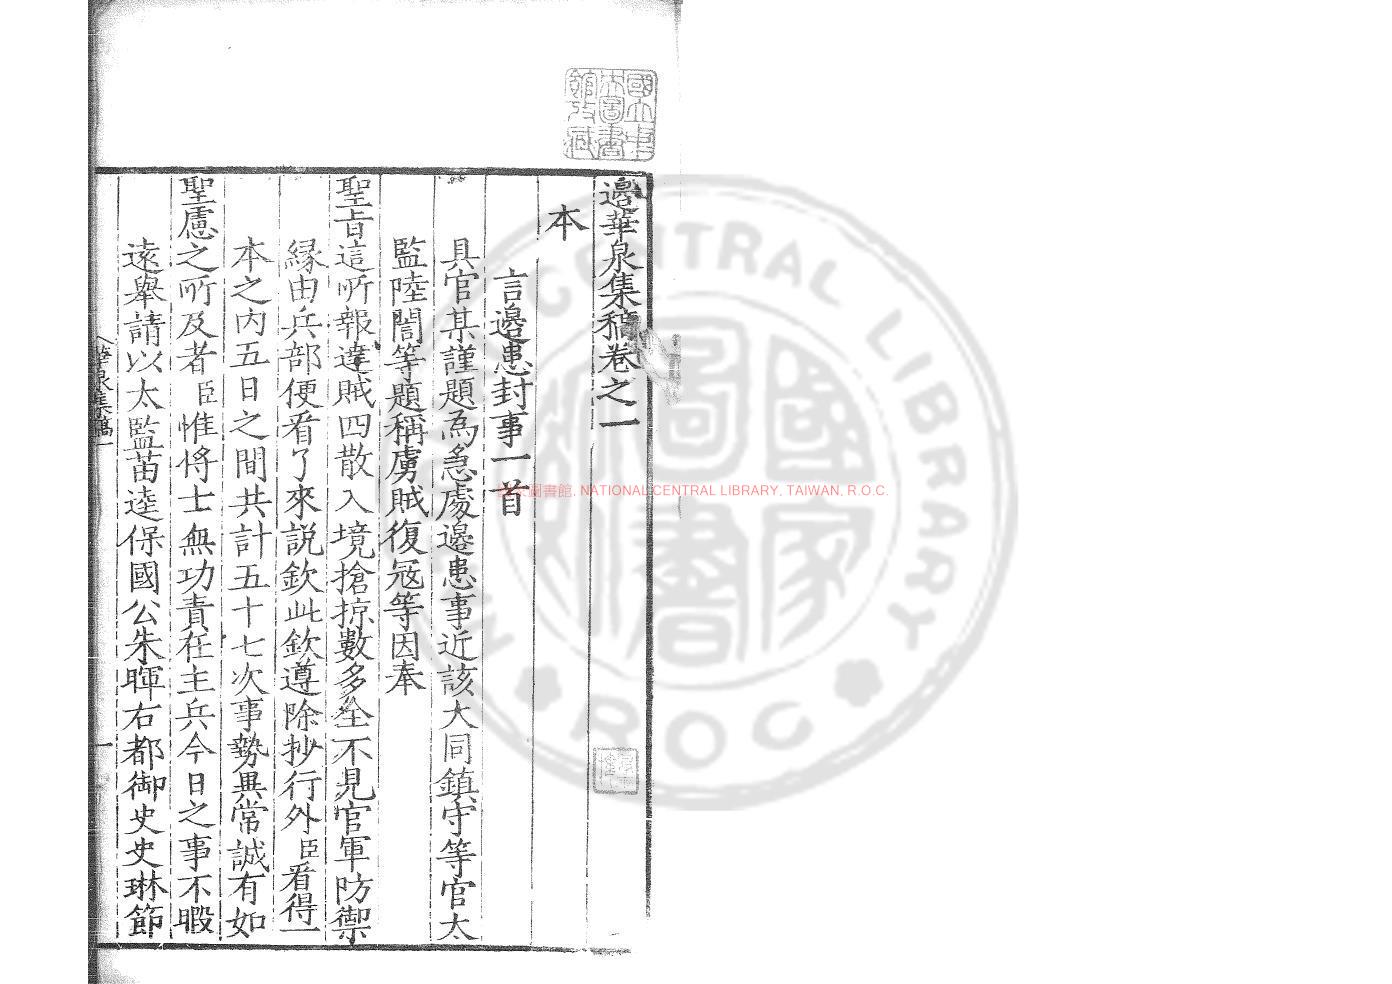 邊華泉集稿卷之一
本
言邊患封事一首
具官某謹題為急處邊患事近該大同鎮守等官太
監陸誾等題稱虜賊復冦等因奉
聖旨這所報達賊四散入境搶掠數多全不見官軍防禦
縁由兵部便看了來説欽此欽遵除抄行外臣看得一
本之内五日之間共計五十七次事勢異常誠有如
聖慮之所及者臣惟將士無功責在主兵今日之事不暇
遠舉請以太監苗逵保國公朱暉右都御史史琳節
華泉集稿一
一
國立中央圖書館收藏
NATIONAL CENTRAL LIBRARY
ROC
國家圖書
圖書館, NATIONAL CENTRAL LIBRARY, TAIWAN, R.O.C.